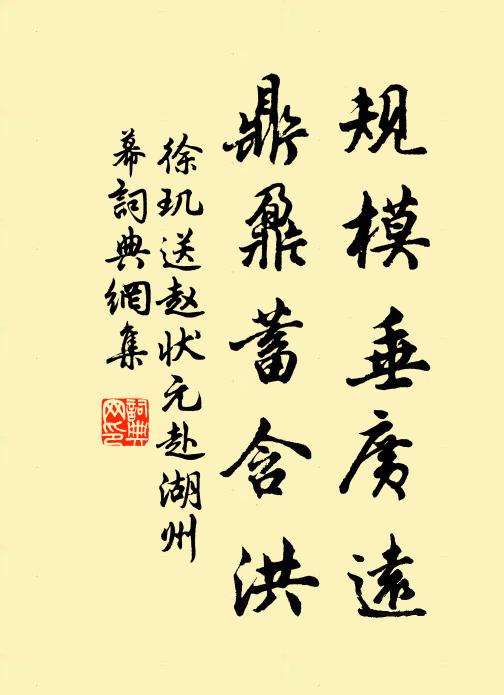 規模垂廣遠
鼎鼐蓄含洪
徐玑送赵状元赴湖州
幕詞典網集
詞典网印